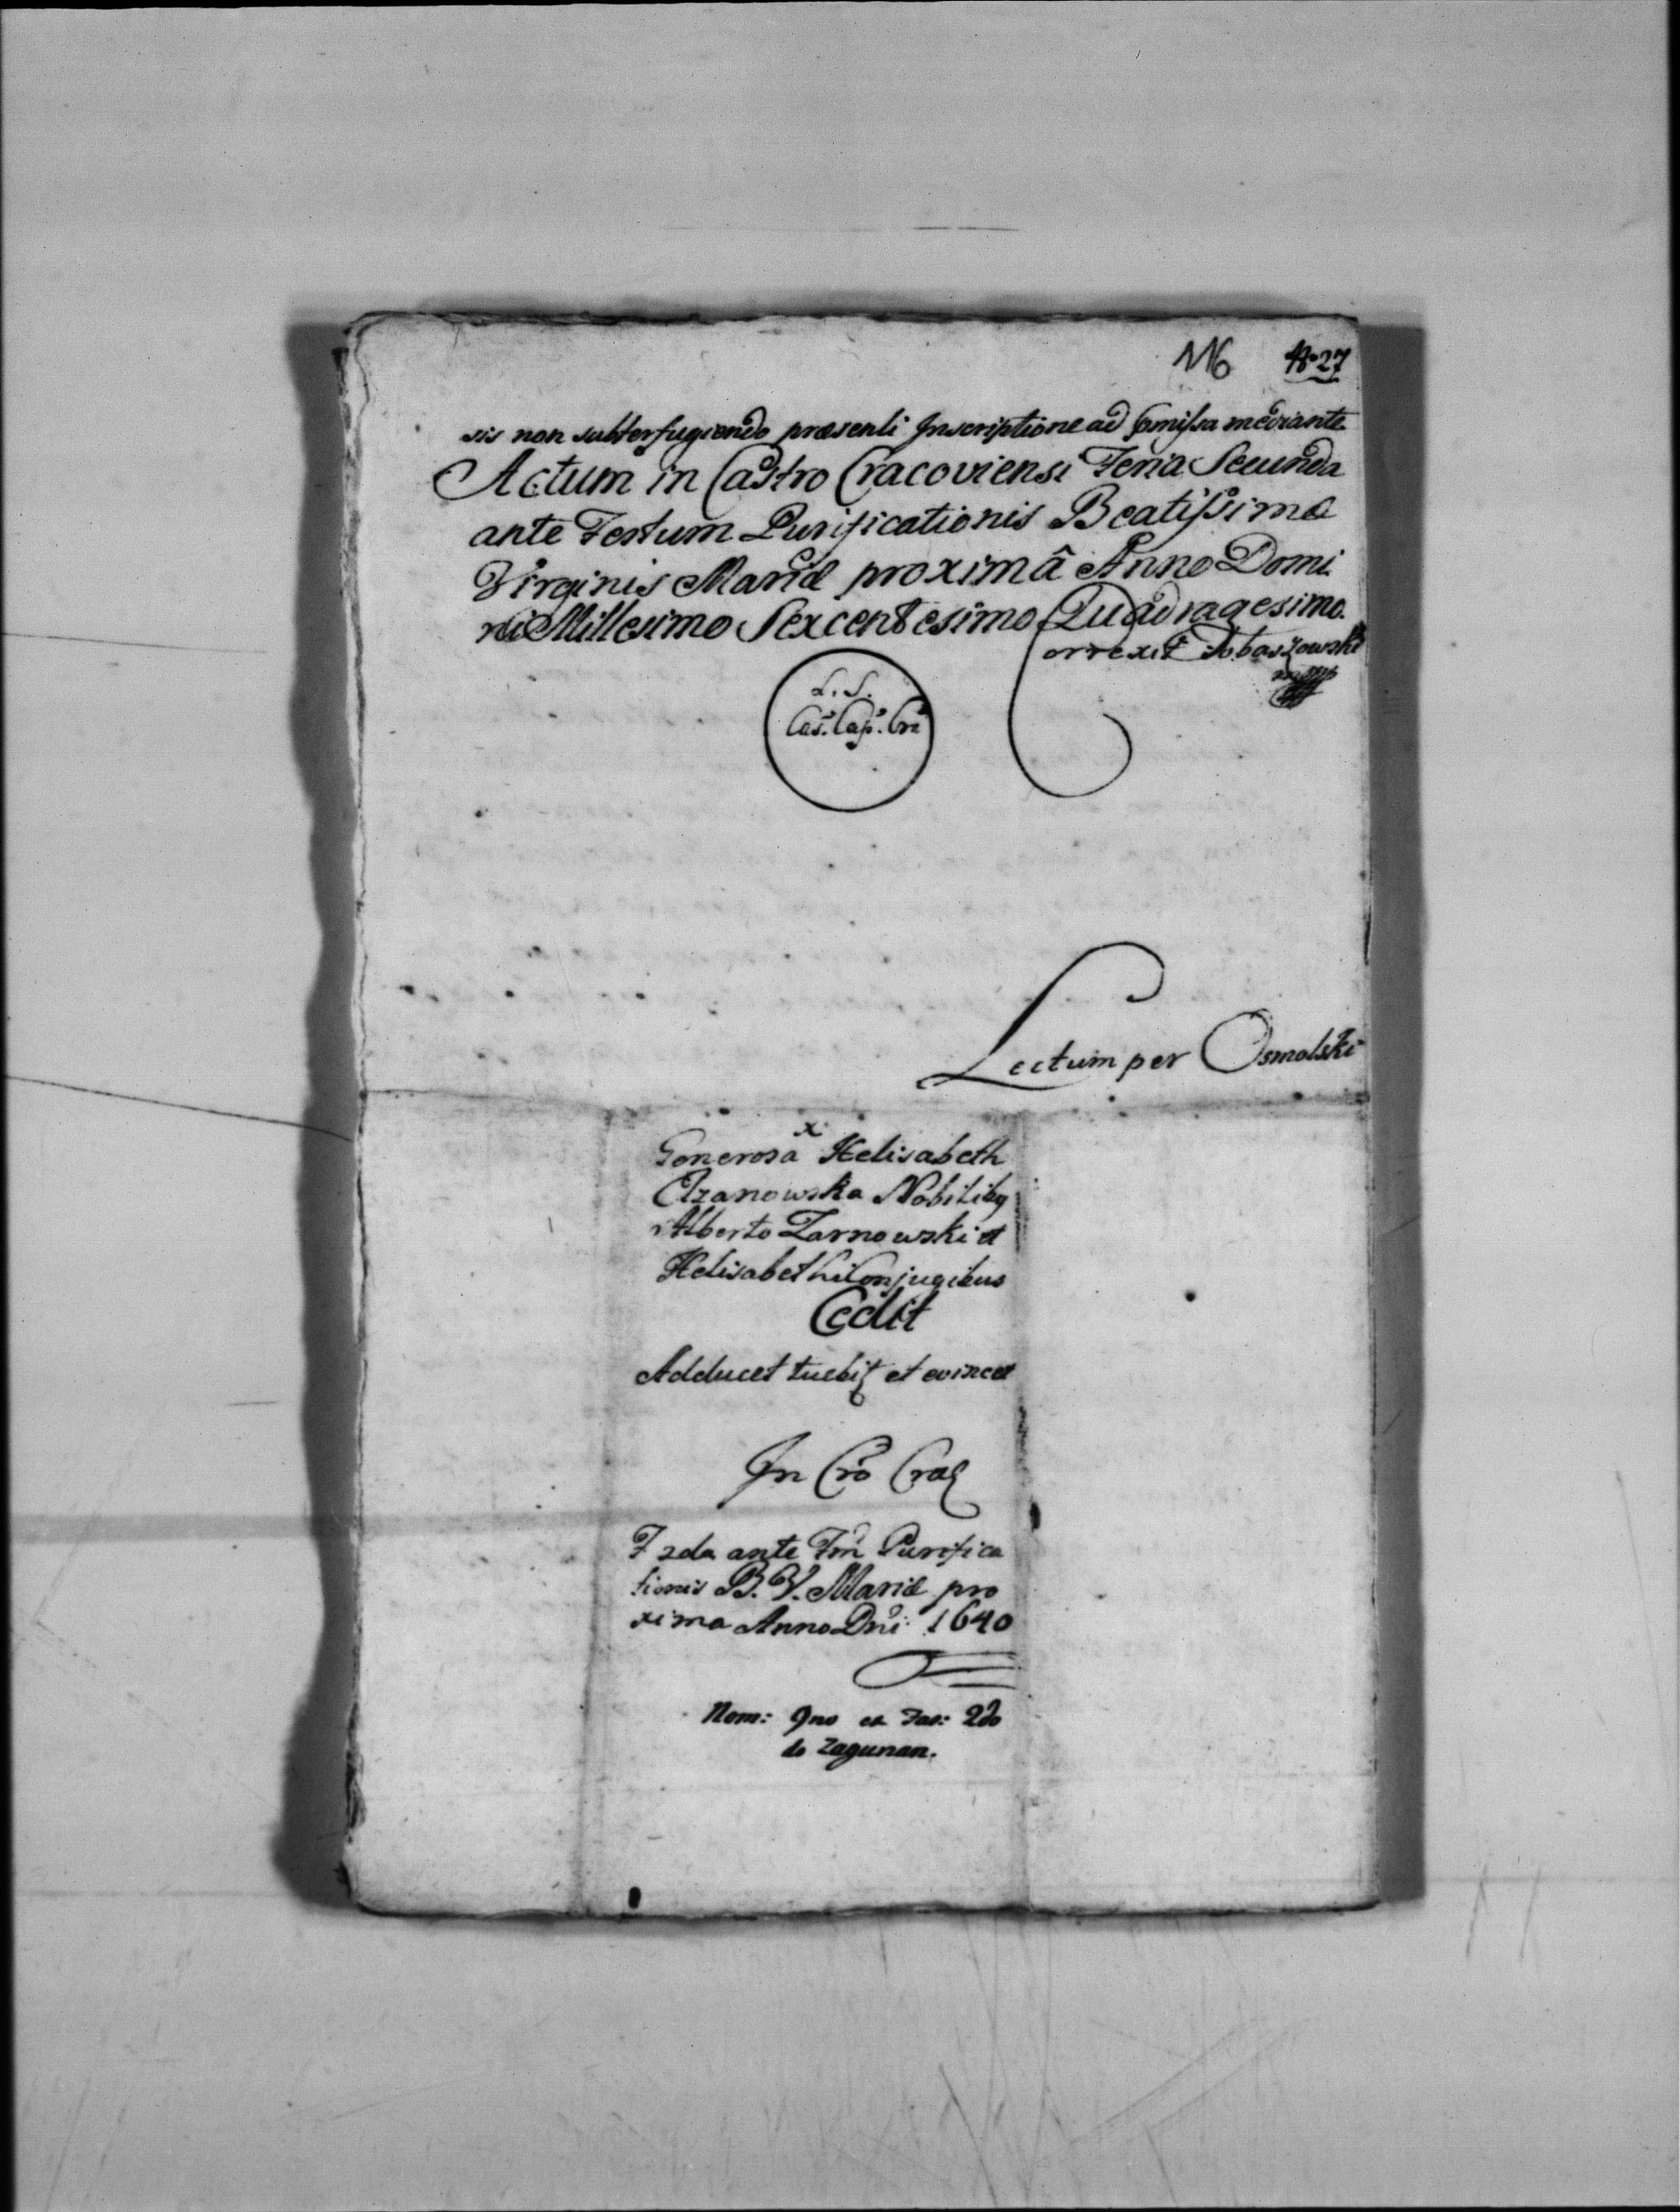 116 No 27
sis non subterfugiendo præsenti Inscriptione ad præmissa mediante
Actum in Castro Cracoviensi Feria Secunda
ante Festum Purificationis Beatissimæ
Virginis Mariæ proximâ Anno Domi
ni Millesimo Sexcentesimo Quadragesimo.
Correxit Tobaszowski
L. S.
Cas. Cap. Cra
Lectum per Osmolski
x
Generosa Helisabeth
Czanowska Nobilibq
Alberto Zarnowski et
Helisabethi Conjugibus
Cedit
Adducet tuebit et evincet
In Cro Crac
F 2da ante Fm Purifica
tionis B. V. Mariæ pro
xima Anno Dni 1640
Nom: 9no ex Fas: 2do
do Zagunan.